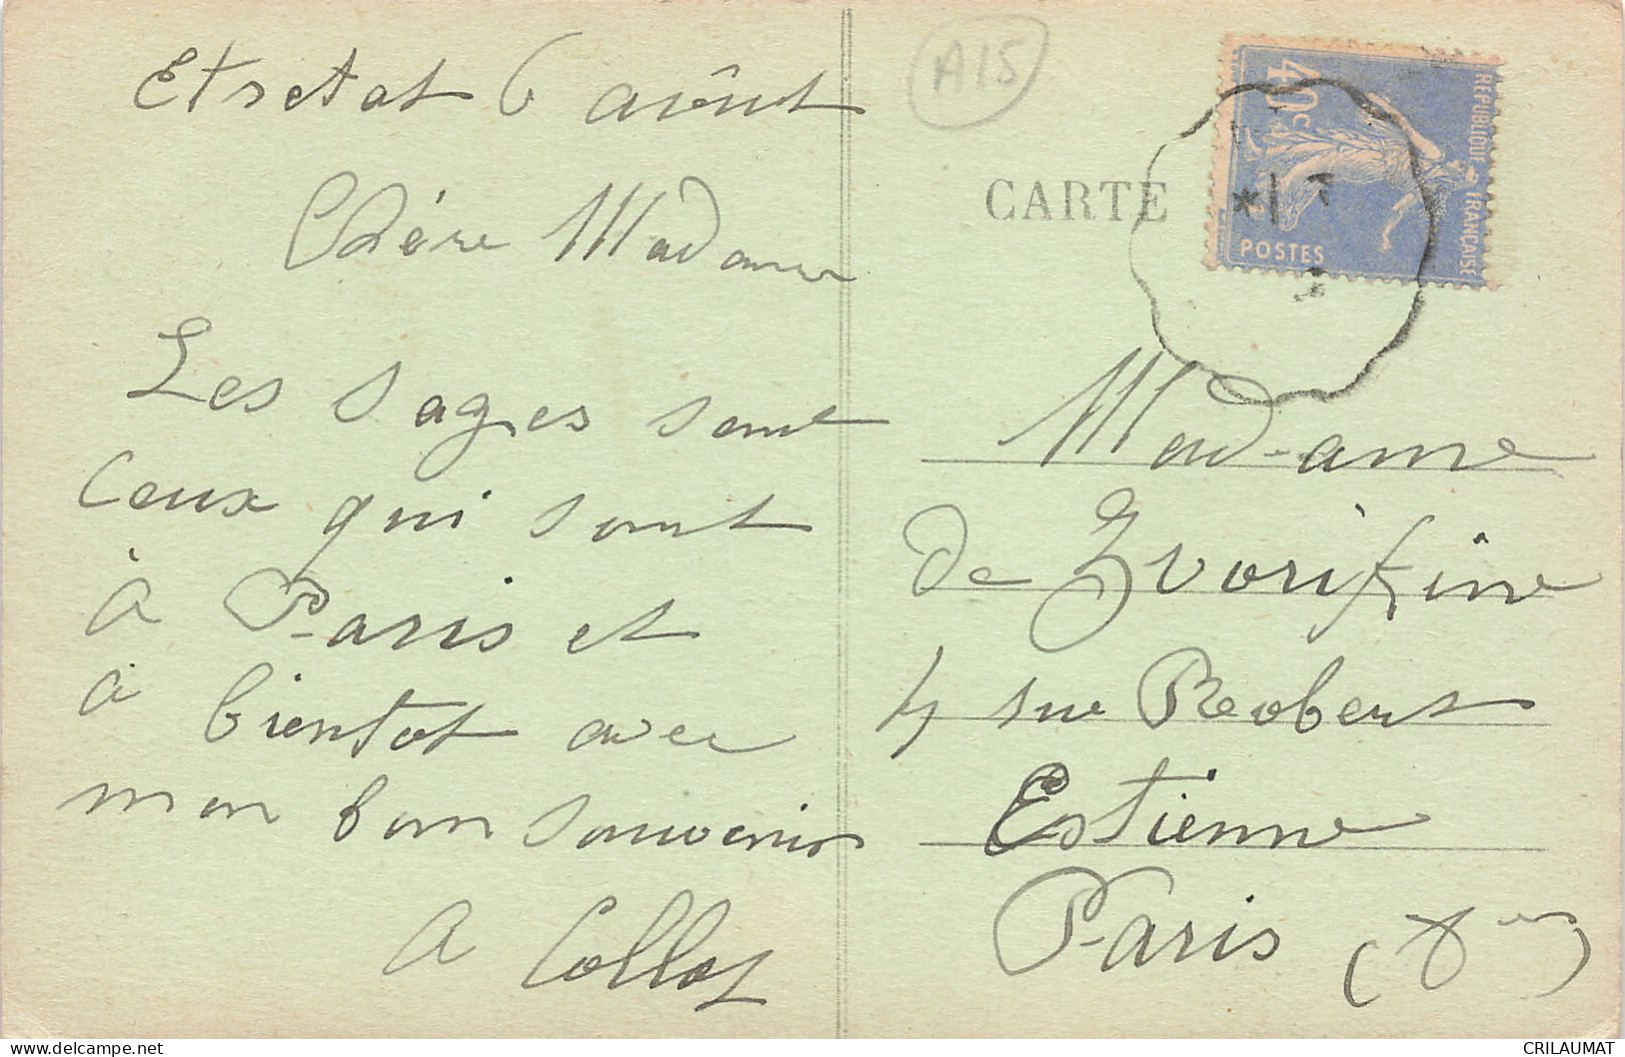 Etretat 6 août
Chère Madame
Les sages sont
ceux qui sont
à Paris et
à bientot avec
mon bon souvenir
A Collot
A15
CARTE
40c
POSTES
REPUBLIQUE FRANÇAISE
Madame
de
4 rue Robert
Estienne
Paris
CRILAUMAT